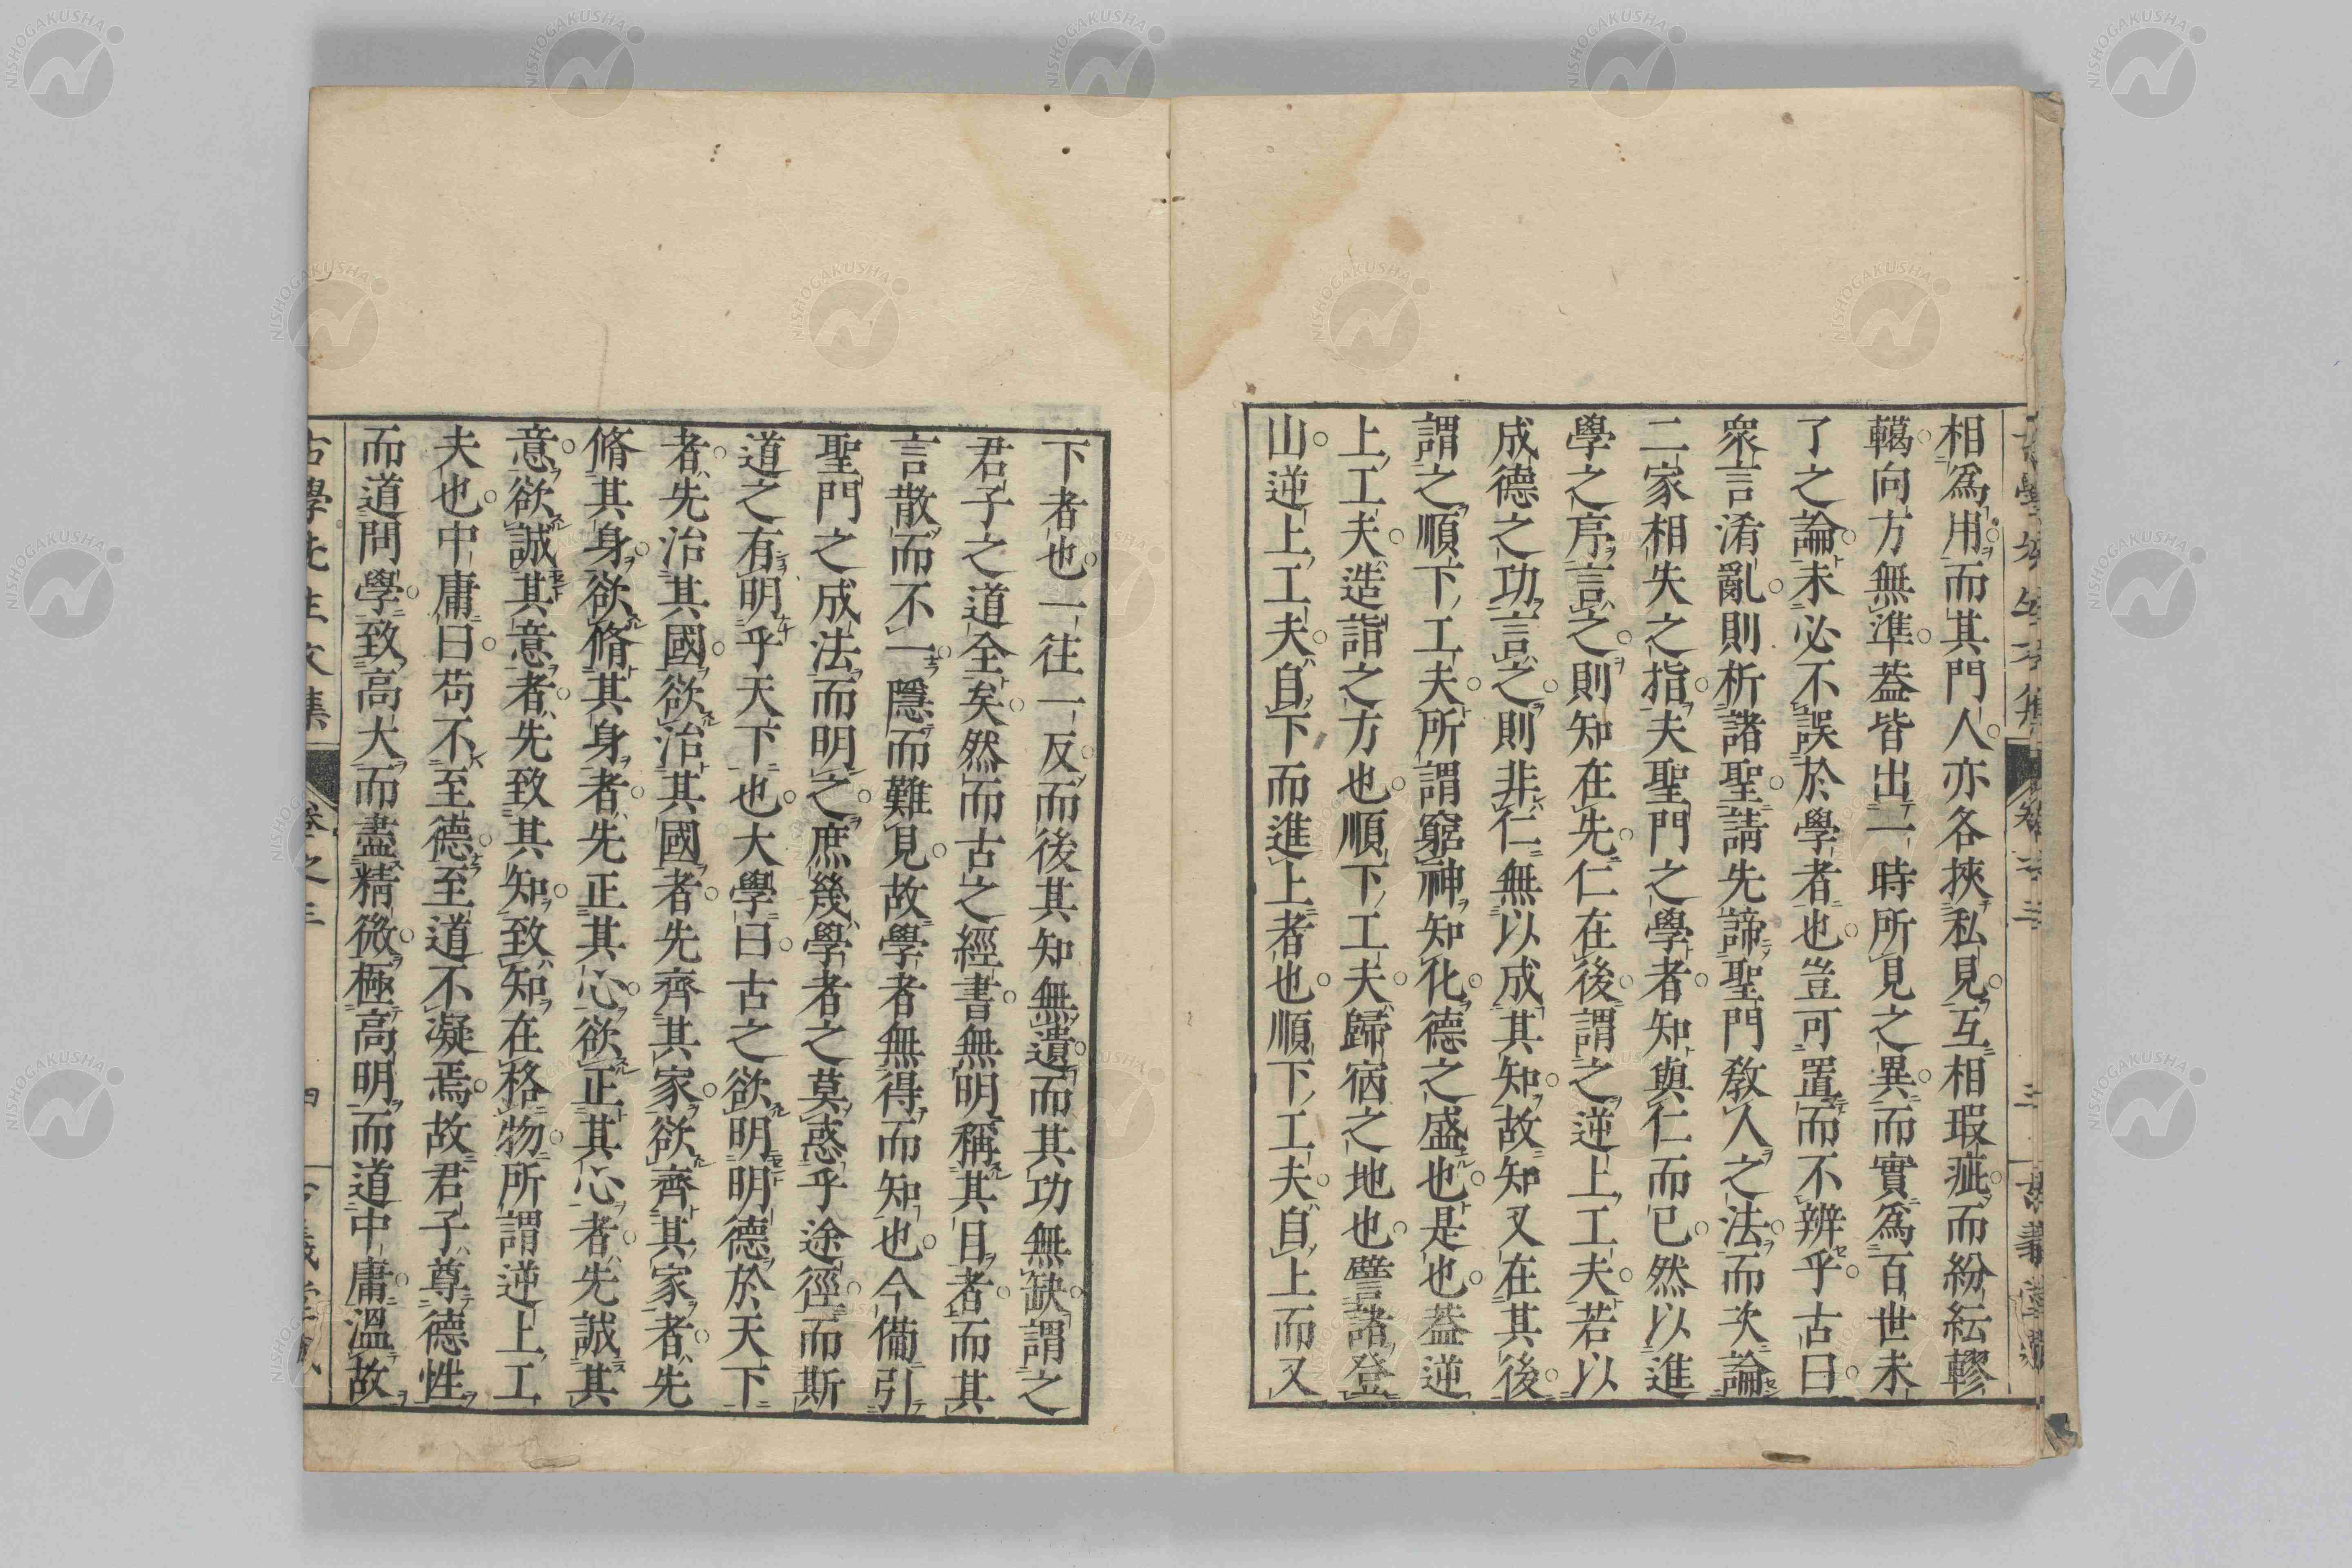 相爲用而其門人亦各挾私見互相瑕疵而紛紜轇
轕向方無準葢皆出一時所見之異而實爲百世未
了之論未必不誤於學者也豈可置而不辨乎古曰
衆言淆亂則析諸聖請先諦聖門敎人之法而次論
二家相失之指夫聖門之學者知與仁而已然以進
學之序言之則知在先仁在後謂之逆上工夫若以
成德之功言之則非仁無以成其知故知又在其後
謂之順下工夫所謂窮神知化德之盛也是也葢逆
上工夫造詣之方也順下工夫歸宿之地也譬諸登
山逆上工夫自下而進上者也順下工夫自上而又
下者也一往一反而後其知無遺而其功無缺謂之
君子之道全矣然而古之經書無明稱其目者而其
言散而不一隱而難見故學者無得而知也今備引
聖門之成法而明之庶幾學者之莫惑乎途徑而斯
道之有明乎天下也大學曰古之欲明明德於天下
者先治其國欲治其國者先齊其家欲齊其家者先
脩其身欲脩其身者先正其心欲正其心者先誠其
意欲誠其意者先致其知致知在格物所謂逆上工
夫也中庸曰苟不至德至道不凝焉故君子尊德性
而道問學致高大而盡精微極高明而道中庸溫故
古學先生文集 卷之三 四